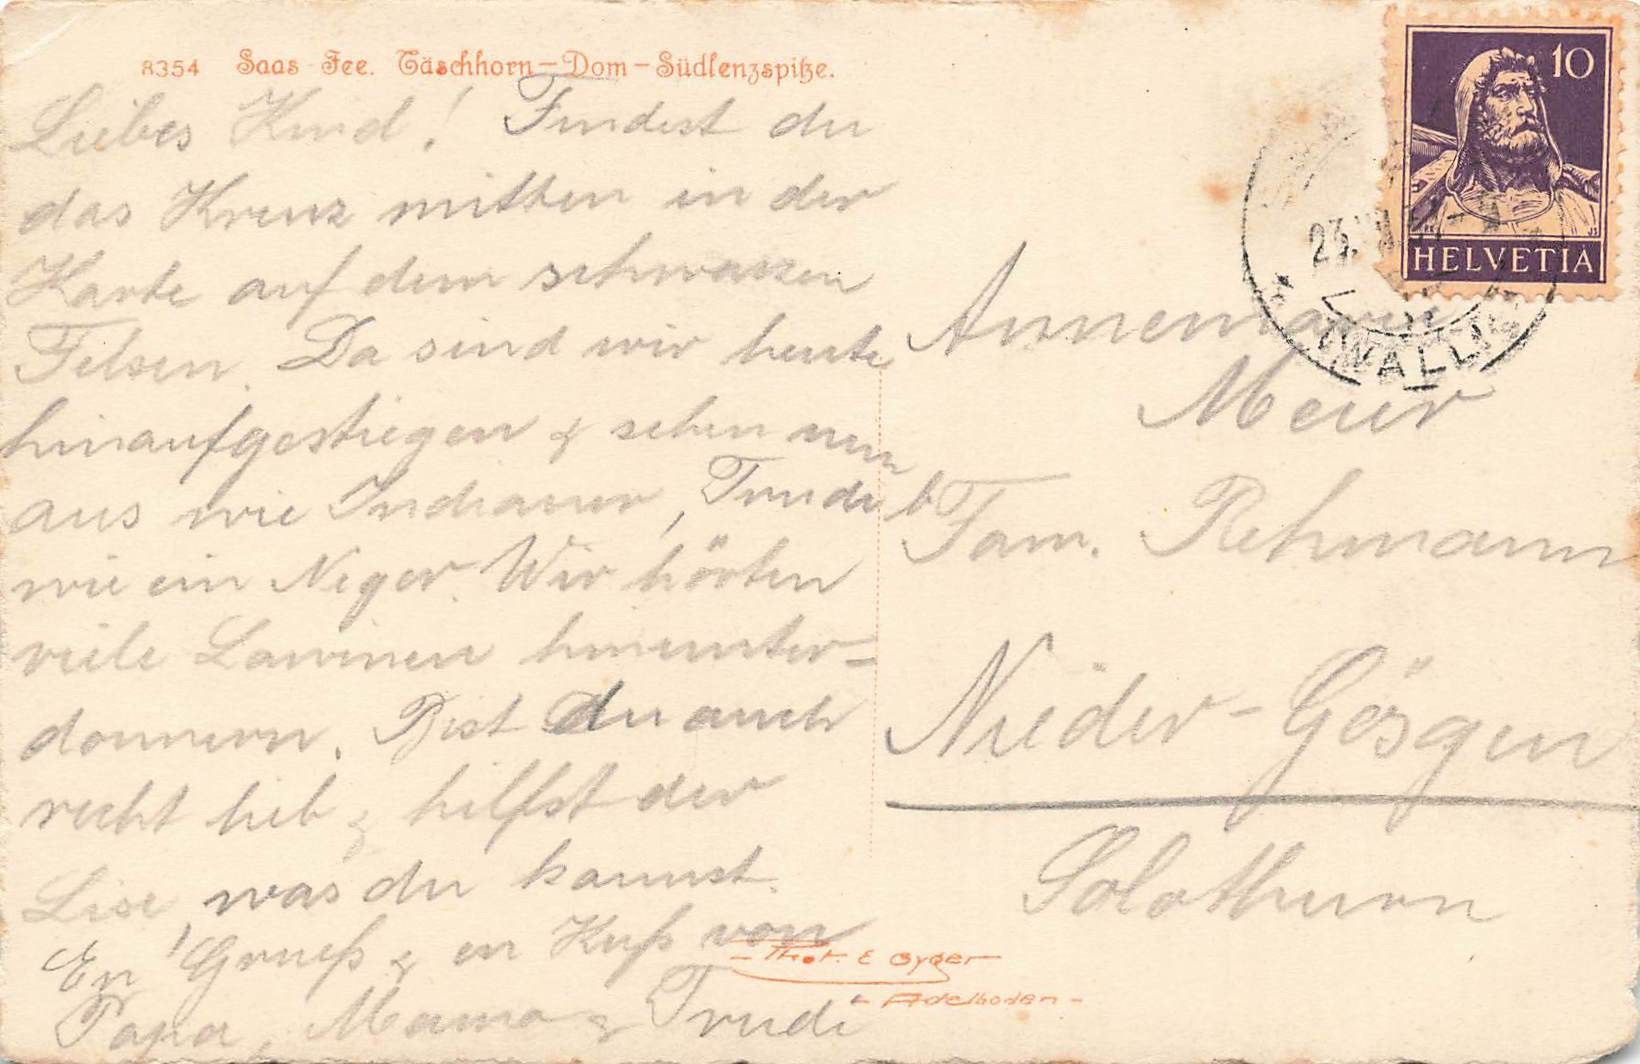 8354 Saas-Fee. Täschhorn-Dom-Südlenzspitze.
Liebes Kind! Findest du
das Kreuz mitten in der
Karte auf dem schwarzen
Felsen. Da sind wir heute
hinaufgestiegen & sehen nun
aus wie Indianer, Trudi
wie ein Neger. Wir hörten
viele Lawinen hinunter-
donnern. Bist du auch
recht lieb & hilfst der
Lise, was du kannst.
En Gruß & en Kuß von
Papa, Mama & Trudi
10
HELVETIA
23.
WALLIS
Annemarie
Meier
b/ Fam. Rehmann
Nieder-Gösgen
Solothurn
- Phot. E Gyger -
- Adelboden -